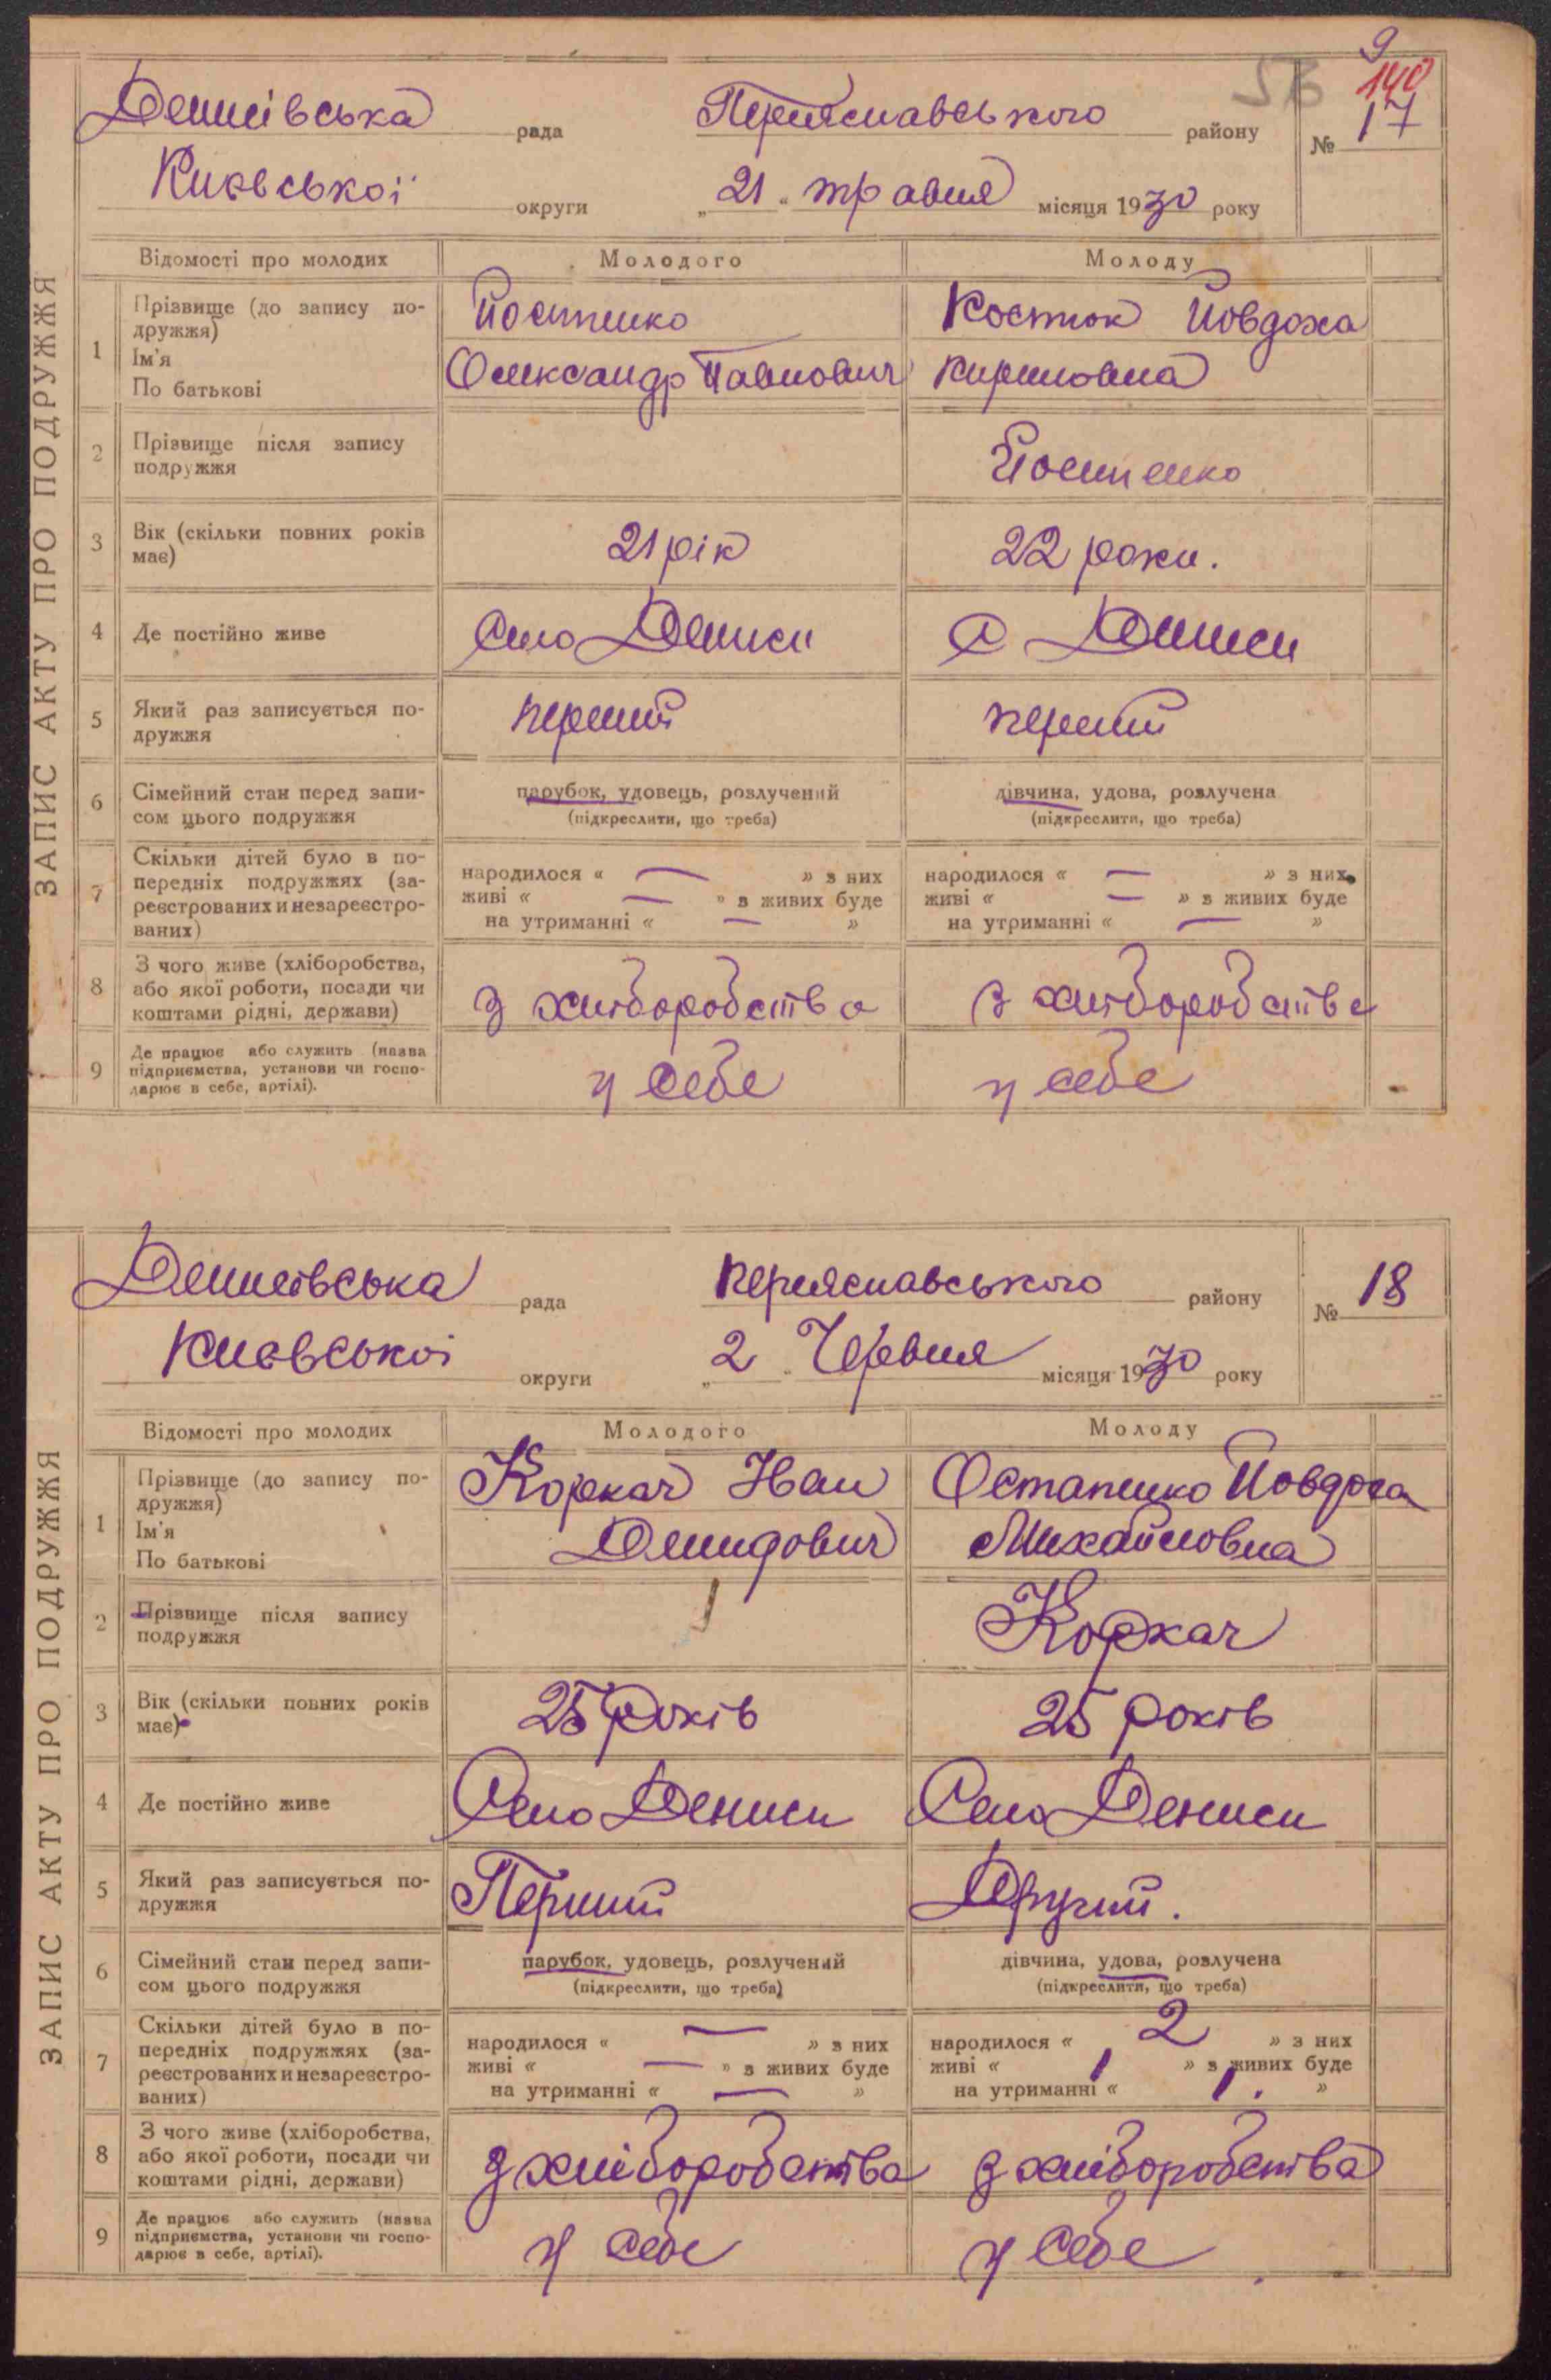 9
140
Денисівська рада Переяславського району № 17
Київської округи „21“ травня місяця 1930 року
ЗАПИС АКТУ ПРО ПОДРУЖЖЯ
Відомості про молодих Молодого Молоду
1 Прізвище (до запису подружжя) Йосипенко Костюк Йовдоха
Ім'я
По батькові Олександр Павлович Кириловна
2 Прізвище після запису подружжя Йосипенко
3 Вік (скільки повних років має) 21 рік 22 роки.
4 Де постійно живе Село Дениси С Дениси
5 Який раз записується подружжя перший перший
6 Сімейний стан перед записом цього подружжя парубок, удовець, розлучений дівчина, удова, розлучена
(підкреслити, що треба) (підкреслити, що треба)
7 Скільки дітей було в попередніх подружжях (зареєстрованих и незареєстрованих)
народилося « — » з них народилося « — » з них
живі « — » з живих буде живі « — » з живих буде
на утриманні « — » на утриманні « — »
8 З чого живе (хліборобства, або якої роботи, посади чи коштами рідні, держави) з хліборобства з хліборобства
9 Де працює або служить (назва підприємства, установи чи господарює в себе, артілі). у себе у себе
Денисівська рада Переяславського району № 18
Київської округи „2“ Червня місяця 1930 року
ЗАПИС АКТУ ПРО ПОДРУЖЖЯ
Відомості про молодих Молодого Молоду
1 Прізвище (до запису подружжя) Коркач Иван Остапенко Йовдоха
Ім'я
По батькові Демидович Михайловна
2 Прізвище після запису подружжя Коркач
3 Вік (скільки повних років має) 25 років 25 років
4 Де постійно живе Село Дениси Село Дениси
5 Який раз записується подружжя Перший Другий.
6 Сімейний стан перед записом цього подружжя парубок, удовець, розлучений дівчина, удова, розлучена
(підкреслити, що треба) (підкреслити, що треба)
7 Скільки дітей було в попередніх подружжях (зареєстрованих и незареєстрованих)
народилося « — » з них народилося « 2 » з них
живі « — » з живих буде живі « 1 » з живих буде
на утриманні « — » на утриманні « 1. »
8 З чого живе (хліборобства, або якої роботи, посади чи коштами рідні, держави) з хліборобства з хліборобства
9 Де працює або служить (назва підприємства, установи чи господарює в себе, артілі). у себе у себе